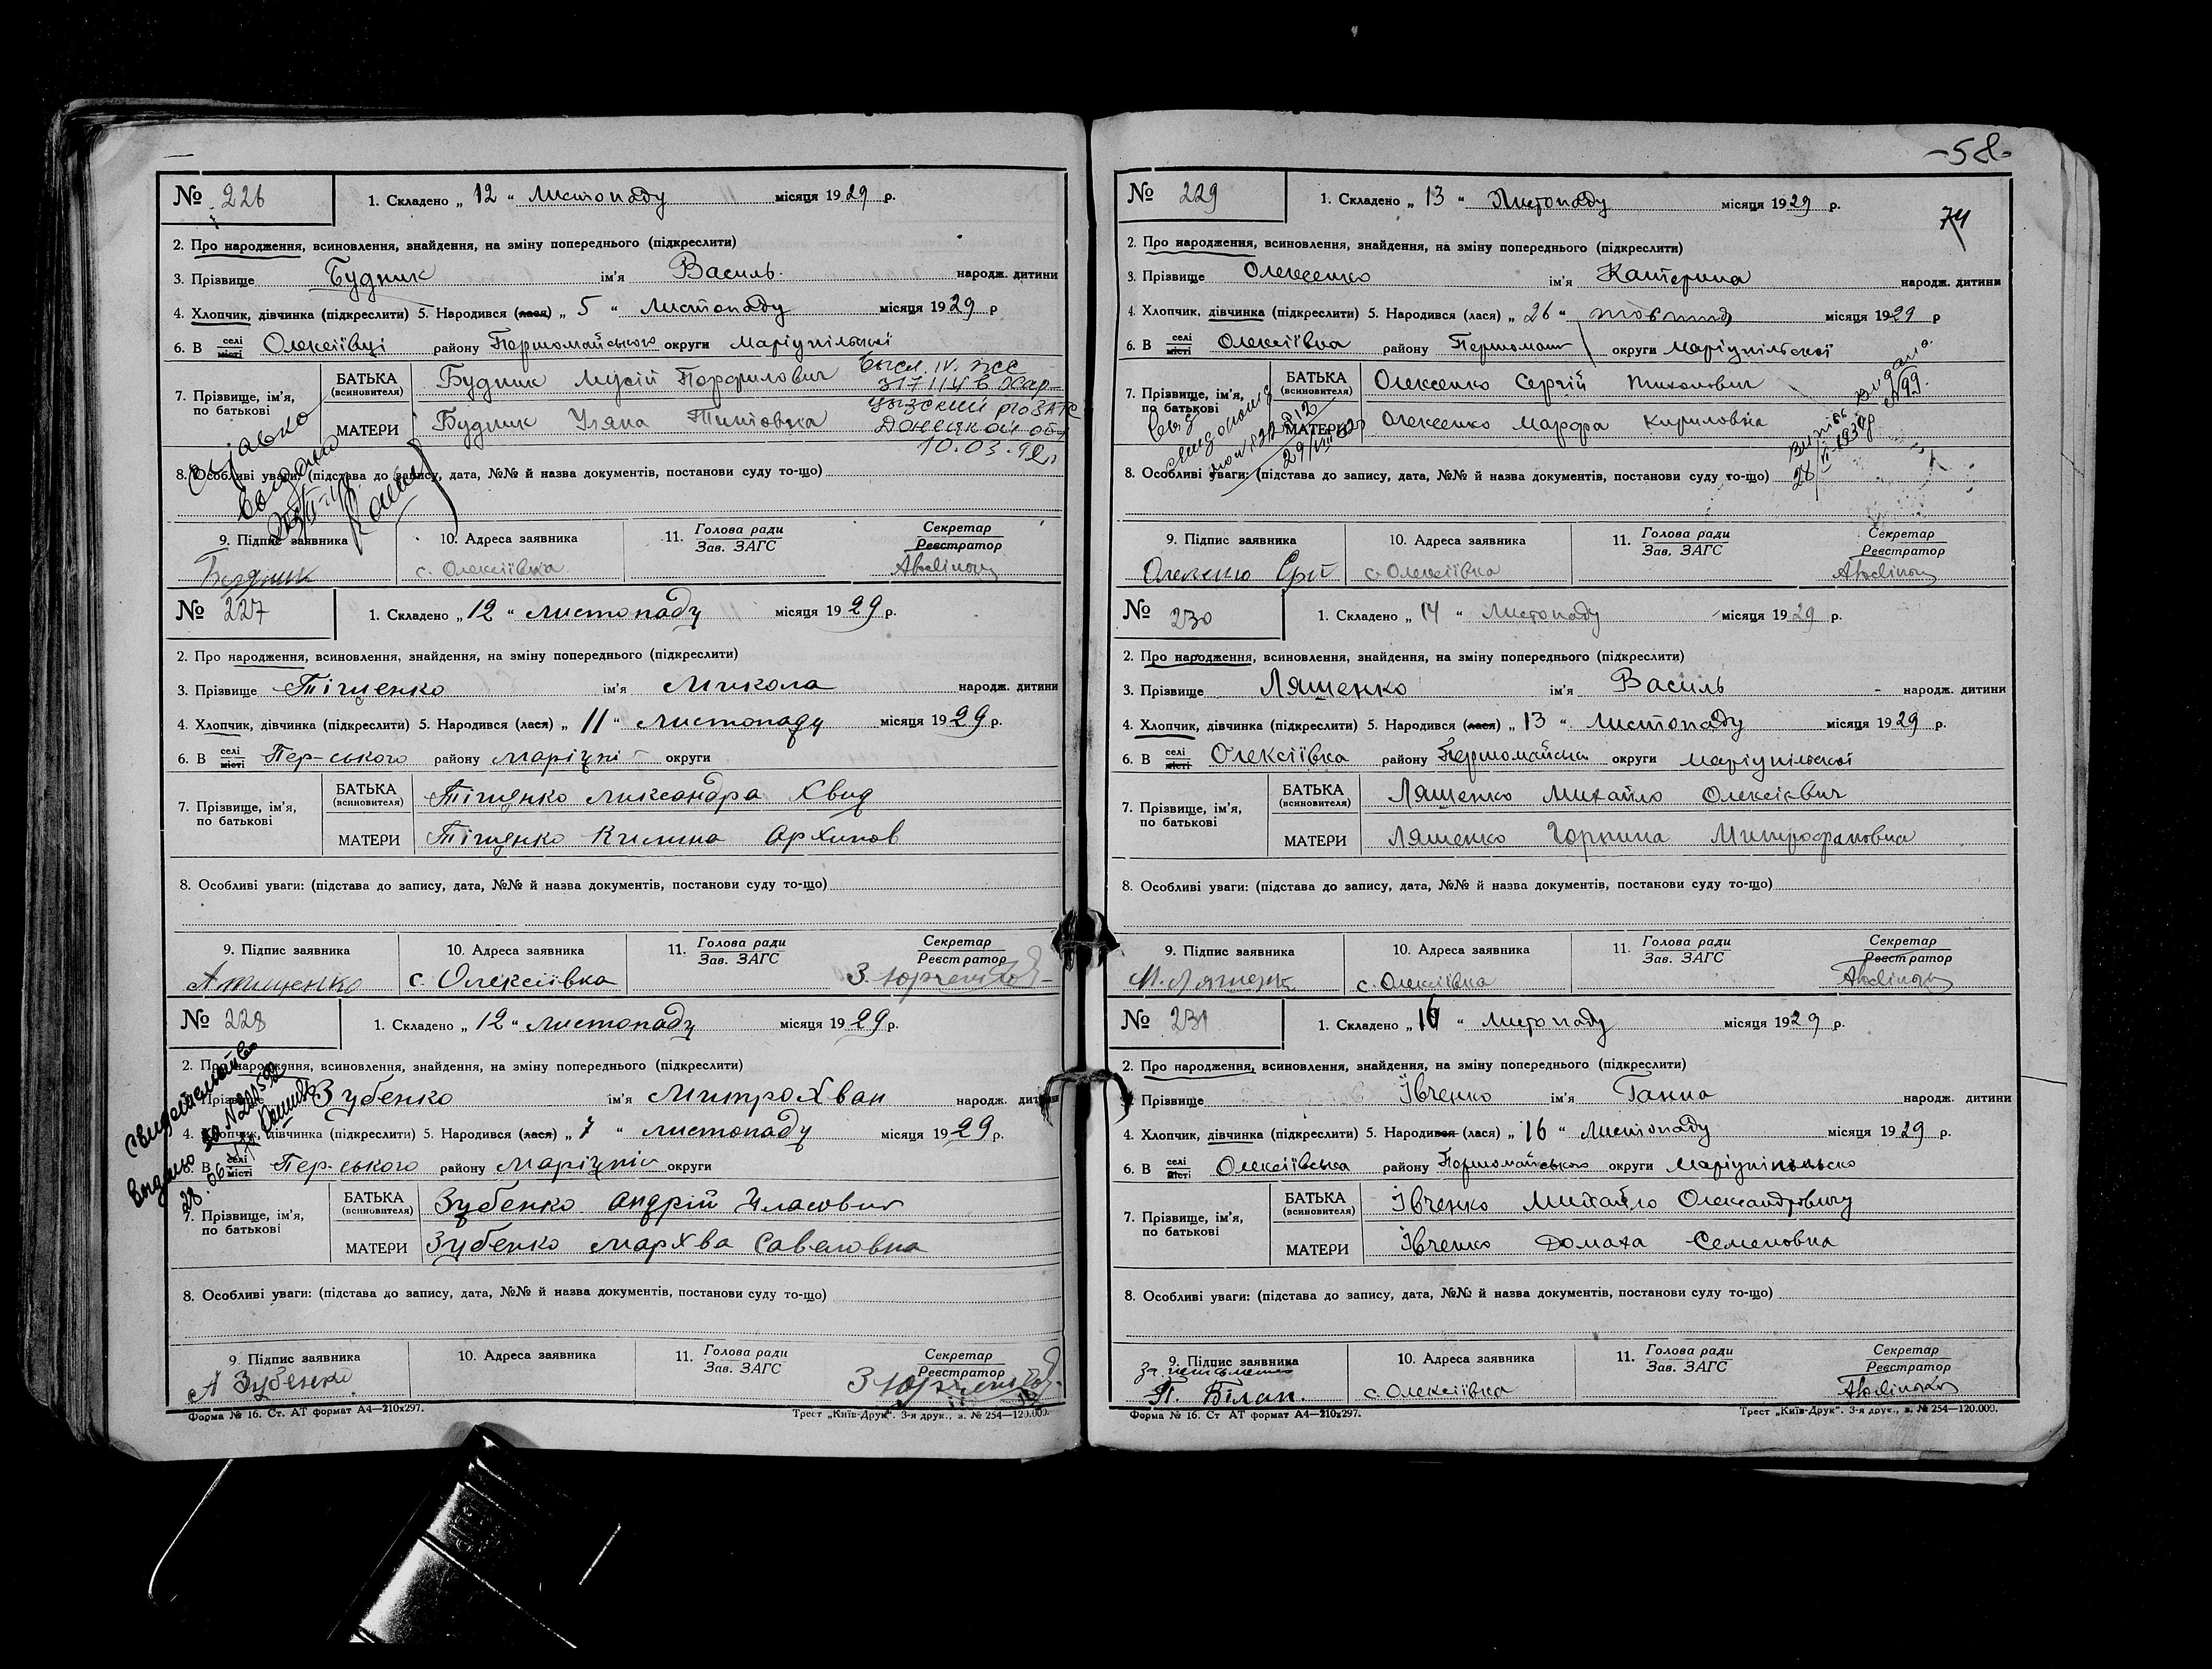 -58-
№ 226
1. Складено „ 12 “ Листопаду місяця 1929 р.
2. Про народження, всиновлення, знайдення, на зміну попереднього (підкреслити)
3. Прізвище Будник ім'я Василь народж. дитини
4. Хлопчик, дівчинка (підкреслити) 5. Народився (лася) „ 5 “ Листопаду місяця 1929 р
6. В селі місті Олексіївці району Першомайського округи Маріупільскої
7. Прізвище, ім'я, по батькові
БАТЬКА (всиновителя) Будник Мусій Порфилович
МАТЕРИ Будник Уляна Титовна
Донецкой обл
10.03.92г
8. Особливі уваги: (підстава до запису, дата, №№ й назва документів, постанови суду то-що)
9. Підпис заявника 10. Адреса заявника 11. Голова ради Зав. ЗАГС Секретар Реєстратор
Будник с. Олексіївка
№ 227
1. Складено „ 12 “ листопаду місяця 1929 р.
2. Про народження, всиновлення, знайдення, на зміну попереднього (підкреслити)
3. Прізвище Тіщенко ім'я Микола народж. дитини
4. Хлопчик, дівчинка (підкреслити) 5. Народився (лася) „ 11 “ листопаду місяця 1929 р.
6. В селі місті Пер-ського району Маріупі- округи
7. Прізвище, ім'я, по батькові
БАТЬКА (всиновителя) Тіщенко Ликсандра Хвид
МАТЕРИ Тіщенко Килина Архипов
8. Особливі уваги: (підстава до запису, дата, №№ й назва документів, постанови суду то-що)
9. Підпис заявника 10. Адреса заявника 11. Голова ради Зав. ЗАГС Секретар Реєстратор
А Тищенко с. Олексіївка
№ 228
1. Складено „ 12 “ листопаду місяця 1929 р.
2. Про народження, всиновлення, знайдення, на зміну попереднього (підкреслити)
Прізвище Зубенко ім'я Митрохван народж. дитини
4. Хлопчик, дівчинка (підкреслити) 5. Народився (лася) „ 7 “ листопаду місяця 1929 р.
6. В селі місті Пер-ського району Маріупі округи
7. Прізвище, ім'я, по батькові
БАТЬКА (всиновителя) Зубенко Андрій Власович
МАТЕРИ Зубенко Мархва Саветовна
8. Особливі уваги: (підстава до запису, дата, №№ й назва документів, постанови суду то-що)
9. Підпис заявника 10. Адреса заявника 11. Голова ради Зав. ЗАГС Секретар Реєстратор
А Зубенко
Форма № 16. Ст. АТ формат А4—210х297. Трест „Київ-Друк“. 3-я друк., з. № 254—120.000.
№ 229
1. Складено „ 13 “ Листопаду місяця 1929 р.
74
2. Про народження, всиновлення, знайдення, на зміну попереднього (підкреслити)
3. Прізвище Олексенко ім'я Катерина народж. дитини
4. Хлопчик, дівчинка (підкреслити) 5. Народився (лася) „ 26 “ місяця 1929 р
6. В селі місті Олексіївка району Першомай округи Маріупільскої
7. Прізвище, ім'я, по батькові
БАТЬКА (всиновителя) Олексенко Сергій Тихонович
МАТЕРИ Олексенко Марфа Кириловна
8. Особливі уваги: (підстава до запису, дата, №№ й назва документів, постанови суду то-що)
9. Підпис заявника 10. Адреса заявника 11. Голова ради Зав. ЗАГС Секретар Реєстратор
с. Олексіївка
№ 230
1. Складено „ 14 “ Листопаду місяця 1929 р.
2. Про народження, всиновлення, знайдення, на зміну попереднього (підкреслити)
3. Прізвище Ляшенко ім'я Василь народж. дитини
4. Хлопчик, дівчинка (підкреслити) 5. Народився (лася) „ 13 “ Листопаду місяця 1929 р.
6. В селі місті Олексіївка району Першомайськ округи Маріупільскої
7. Прізвище, ім'я, по батькові
БАТЬКА (всиновителя) Ляшенко Михайло Олексієвич
МАТЕРИ Ляшенко Горпина Митрофановна
8. Особливі уваги: (підстава до запису, дата, №№ й назва документів, постанови суду то-що)
9. Підпис заявника 10. Адреса заявника 11. Голова ради Зав. ЗАГС Секретар Реєстратор
М. Ляшенк с. Олексіївка
№ 231
1. Складено „ 16 “ Листопаду місяця 1929 р.
2. Про народження, всиновлення, знайдення, на зміну попереднього (підкреслити)
Прізвище Івченко ім'я Ганна народж. дитини
4. Хлопчик, дівчинка (підкреслити) 5. Народився (лася) „ 16 “ Листопаду місяця 1929 р.
6. В селі місті Олексіївська району Першомайського округи Маріупільсько
7. Прізвище, ім'я, по батькові
БАТЬКА (всиновителя) Івченко Михайло Олександровичу
МАТЕРИ Івченко Домаха Семеновна
8. Особливі уваги: (підстава до запису, дата, №№ й назва документів, постанови суду то-що)
9. Підпис заявника 10. Адреса заявника 11. Голова ради Зав. ЗАГС Секретар Реєстратор
П. Білан. с. Олексіївка
Форма № 16. Ст АТ формат А4—210х297. Трест „Київ-Друк“. 3-я друк., з. № 254—120.000.